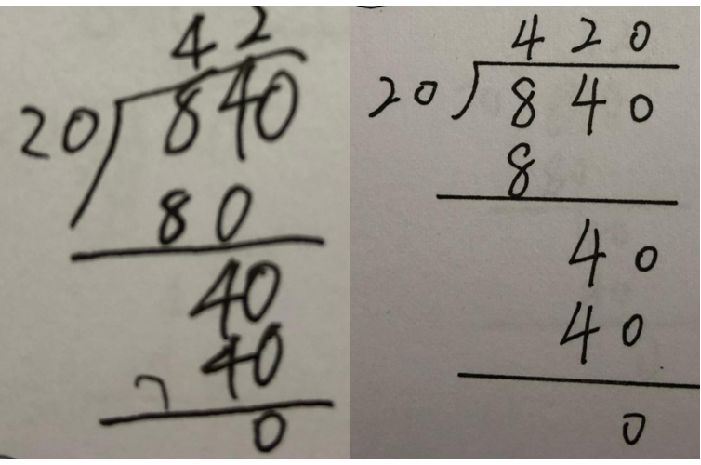 42
20)840
80
40
40
0
420
20)840
8
40
40
0